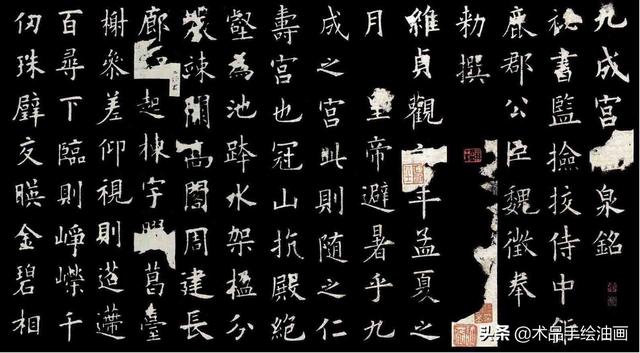 九成宮泉銘
祕書監撿挍侍中鉅
鹿郡公臣魏徵奉
勅撰
維貞觀年孟夏之
月皇帝避暑乎九
成之宮此則隨之仁
壽宮也冠山抗殿絕
壑為池跨水架楹分
巖竦闕高閣周建長
廊起棟宇膠葛臺
榭參差仰視則迢遰
百尋下臨則崢嶸千
仞珠璧交暎金碧相
头条 @术品手绘油画